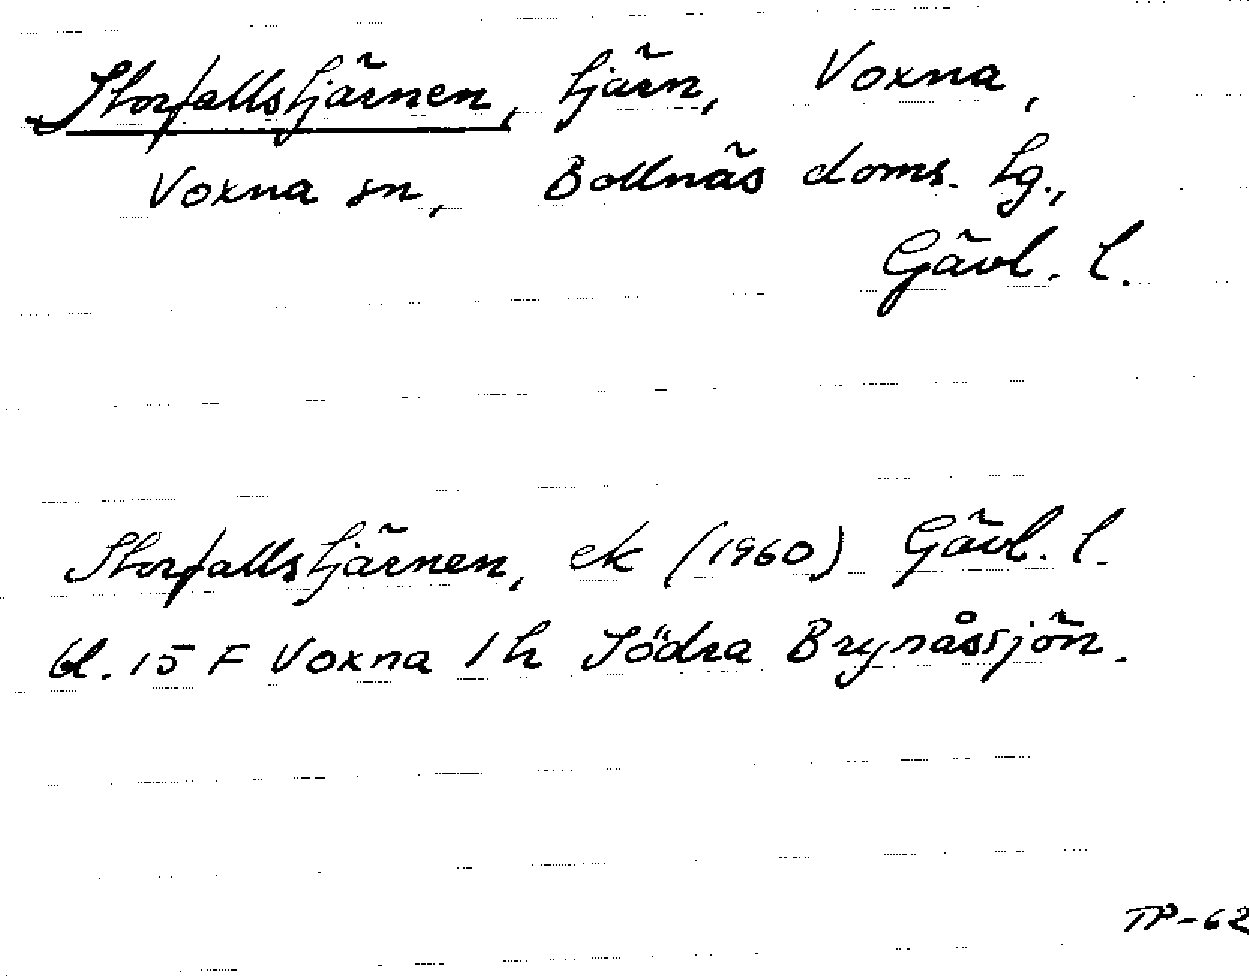 Storfallstjärnen, tjärn, Voxna,
Voxna sn, Bollnäs doms. tg.,
Gävl. l.
Storfallstjärnen, ek (1960) Gävl. l.
bl. 15 F Voxna 1 h Södra Brynåssjön.
TP-62